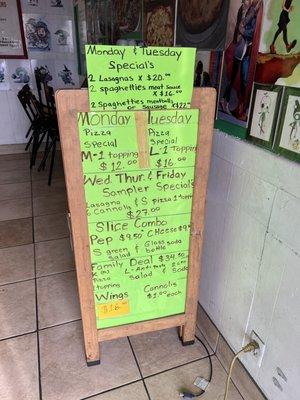 Monday & Tuesday
Special's
2 Lasagnas x $20.00
2 spaghettes meat sauce
x $22.00
2 Spaghettes meatballs
or sausage
Monday
Pizza
Special
M-1 topping
$12.00
Tuesday
Pizza
Special
L-1 Topping
$16.00
Wed. Thu & Friday
Sampler Specials
Lasagna & S pizza 1 top
& Cannolis
$27.00
Slice Combo
Pep $9.50 Cheese $9
S green & Gloss soda
salad bottle
Family Deal $34.50
Pizza
salad & Soda
topping
Wings
$16
Cannolis
each